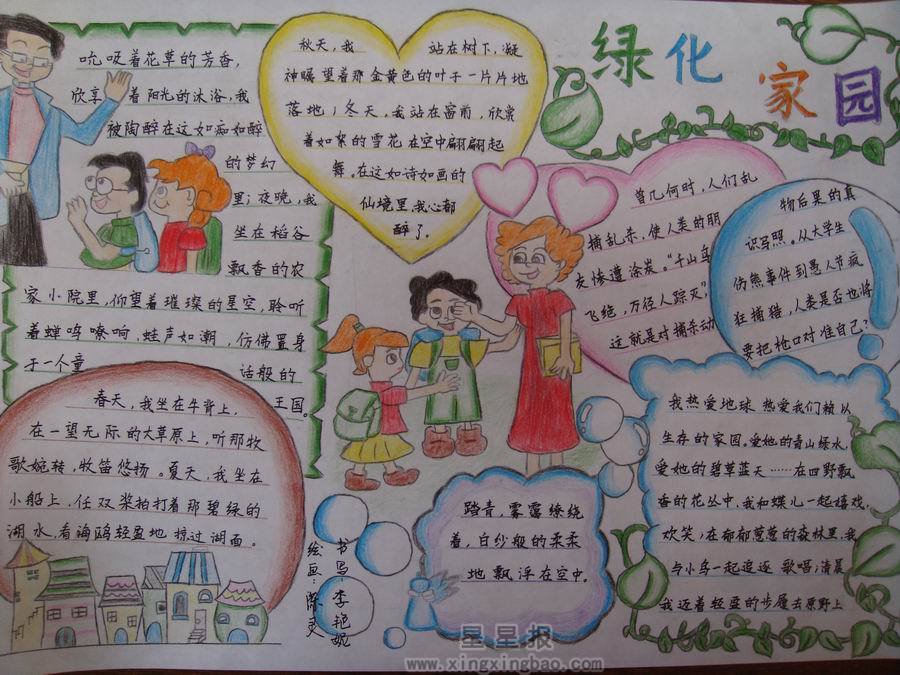 绿化家园
吮吸着花草的芳香,
欣享着阳光的沐浴,我
被陶醉在这如痴如醉
的梦幻
里;夜晚,我
坐在稻谷
飘香的农
家小院里,仰望着璀璨的星空,聆听
着蝉鸣嘹响,蛙声如潮,仿佛置身
于一个童话般的
王国。
秋天,我站在树下,凝
神瞩望着那金黄色的叶子一片片地
落地;冬天,我站在窗前,欣赏
着如絮的雪花在空中翩翩起
舞。在这如诗如画的
仙境里,我心都
醉了。
曾几何时,人们乱
捕乱杀,使人类的朋
友惨遭涂炭。“千山鸟
飞绝,万径人踪灭”,
这就是对捕杀动
物后果的真
识写照。从大学生
伤熊事件到愚人节疯
狂捕猎,人类是否也将
要把枪口对准自己?
春天,我坐在牛背上,
在一望无际的大草原上,听那牧
歌婉转,牧笛悠扬。夏天,我坐在
小船上,任双桨拍打着那碧绿的
湖水,看海鸥轻盈地掠过湖面。
我热爱地球,热爱我们赖以
生存的家园。爱她的青山绿水,
爱她的碧草蓝天……在四野飘
香的花丛中,我和蝶儿一起嬉戏,
欢笑;在郁郁葱葱的森林里,我
与小鸟一起追逐歌唱;清晨
我迈着轻盈的步履去原野上
踏青,雾霭缭绕
着,白纱般的柔柔
地飘浮在空中。
书写:李艳妮
绘画:陈灵
星星报
www.xingxingbao.com